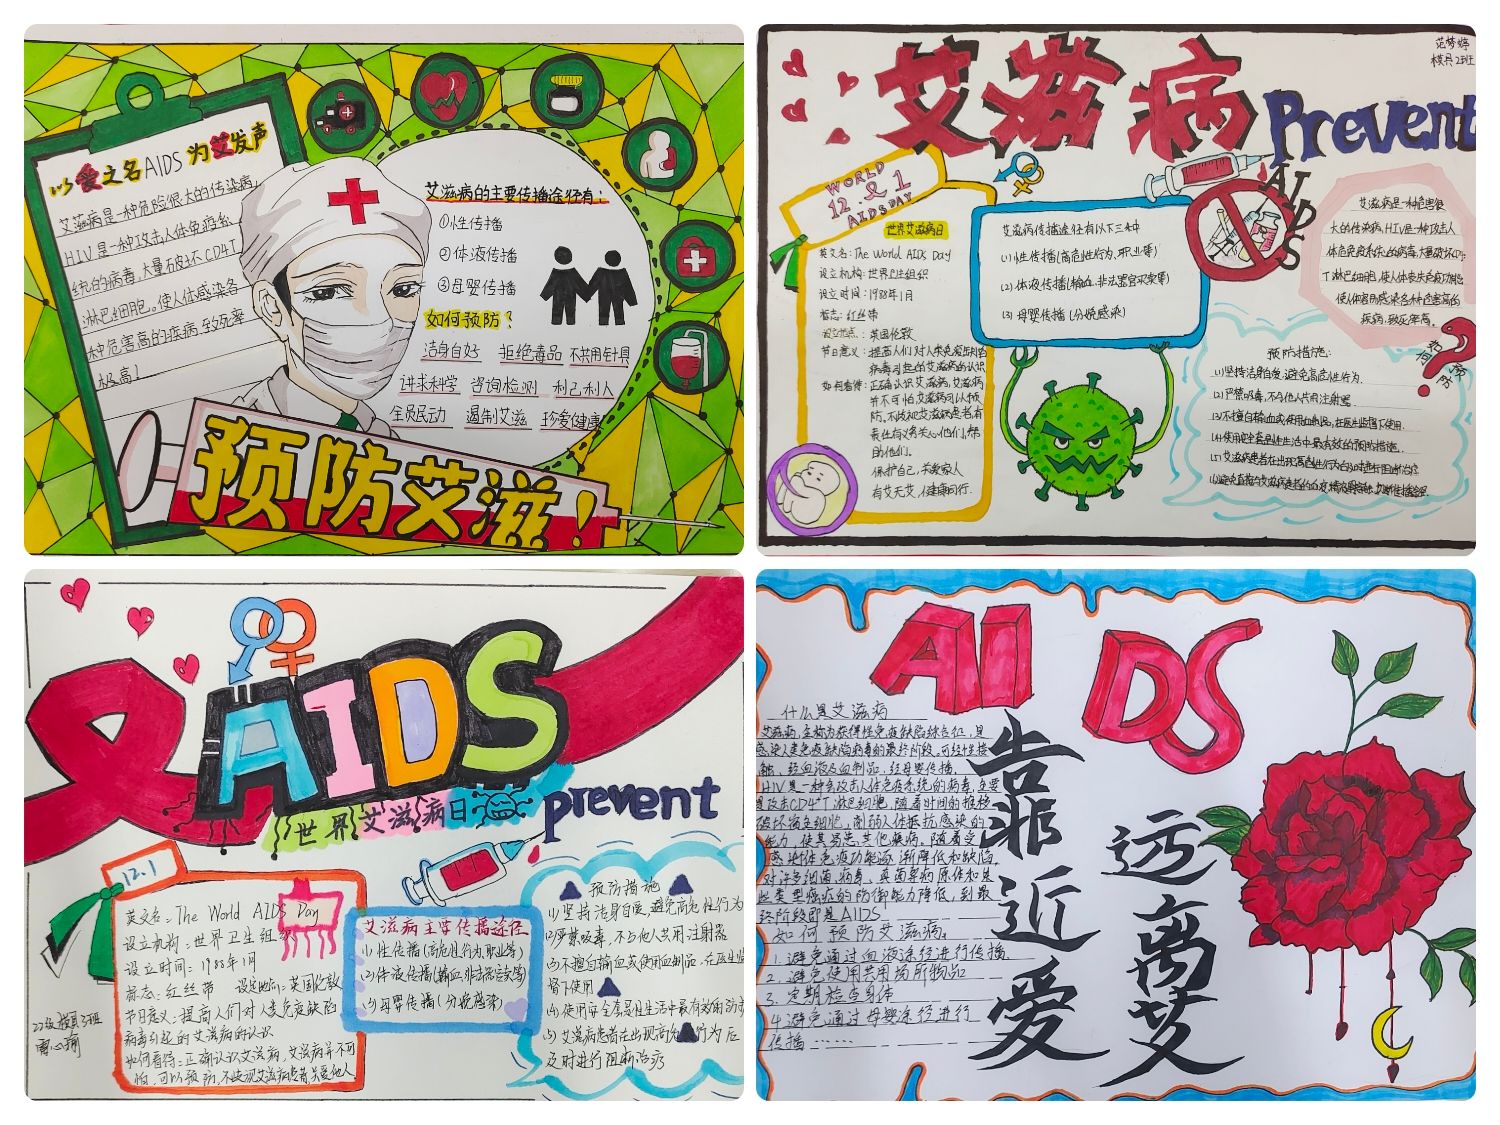 以爱之名AIDS为艾发声
艾滋病是一种危险很大的传染病,
HIV是一种攻击人体免疫系
统的病毒,大量破坏CD4T
淋巴细胞,使人体感染各
种危害高的疾病,致死率
极高!
艾滋病的主要传播途径有:
①性传播
②体液传播
③母婴传播
如何预防?
洁身自好 拒绝毒品 不共用针具
讲求科学 咨询检测 利己利人
全员民动 遏制艾滋 珍爱健康
预防艾滋!
范梦婷
模具2班
艾滋病Prevent
AIDS
WORLD
12.&1
AIDS DAY
世界艾滋病日
英文名:The World AIDS Day
设立机构:世界卫生组织
设立时间:1988年1月
标志:红丝带
设立地点:英国伦敦
节日意义:提高人们对人类免疫缺陷
病毒引起的艾滋病的认识
如何看待:正确认识艾滋病,艾滋病
并不可怕,艾滋病可以预
防,不歧视艾滋病患者,有
责任有义务关心他们,帮
助他们。
保护自己,关爱家人
有艾无艾,健康同行.
艾滋病传播途径有以下三种
(1)性传播(高危性行为,职业等)
(2)体液传播(输血,非法器官买卖等)
(3)母婴传播(分娩感染)
艾滋病是一种危害很
大的传染病,HIV是一种攻击人
体免疫系统的病毒,大量破坏CD4
T淋巴细胞,使人体丧失免疫功能
使人体易感染各种危害高的
疾病,致死率高。
如何预防?
预防措施:
(1)坚持洁身自爱,避免高危性行为.
(2)严禁吸毒,不与他人共用注射器
(3)不擅自输血或使用血制品,在医生监督下使用.
(4)使用安全套是性生活中最有效的预防措施.
(5)艾滋病患者在出现高危性行为后及时进行阻断治疗
AIDS
世界艾滋病日
prevent
12.1
英文名:The World AIDS Day
设立机构:世界卫生组织
设立时间:1988年1月
标志:红丝带 设定地点:英国伦敦
节日意义:提高人们对人类免疫缺陷
病毒引起的艾滋病的认识
如何看待:正确认识艾滋病,艾滋病并不可
怕,可以预防,不歧视艾滋病患者,关爱他人
22级模具3班
艾滋病主要传播途径
(1)性传播(高危性行为,职业等)
(2)体液传播(输血,非法器官买卖等)
(3)母婴传播(分娩感染)
预防措施
(1)坚持洁身自爱,避免高危性行为
(2)严禁吸毒,不与他人共用注射器
(3)不擅自输血或使用血制品,在医生监
督下使用
(4)使用安全套是性生活中最有效的防
(5)艾滋病患者在出现高危性行为后
及时进行阻断治疗
AIDS
什么是艾滋病
艾滋病,全称为获得性免疫缺陷综合征,是
感染人类免疫缺陷病毒的最终阶段,可经性接
触、经血液及血制品、经母婴传播,
HIV是一种会攻击人体免疫系统的病毒,主要
是攻击CD4+T淋巴细胞,随着时间的推移
破坏宿主细胞,削弱人体抵抗感染的
能力,使其易患其他疾病。随着受
感染体免疫功能逐渐降低和缺陷,
对许多细菌、病毒、真菌等病原体和某
些类型癌症的防御能力降低,到最
终阶段即是AIDS!
如何预防艾滋病:
1.避免通过血液途径进行传播.
2.避免使用共用场所物品
3.定期检查身体
4.避免通过母婴途径进行
传播……
告非近爱
远离艾